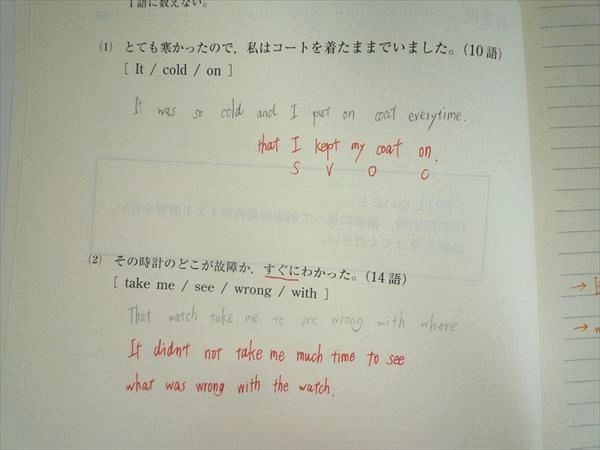 1語に数えない。
(1) とても寒かったので，私はコートを着たままでいました。(10語)
[ It / cold / on ]
It was so cold and I put on coat everytime.
that I kept my coat on.
S V O C
(2) その時計のどこが故障か，すぐにわかった。(14語)
[ take me / see / wrong / with ]
That watch take me to see wrong with where.
It didn't not take me much time to see
what was wrong with the watch.